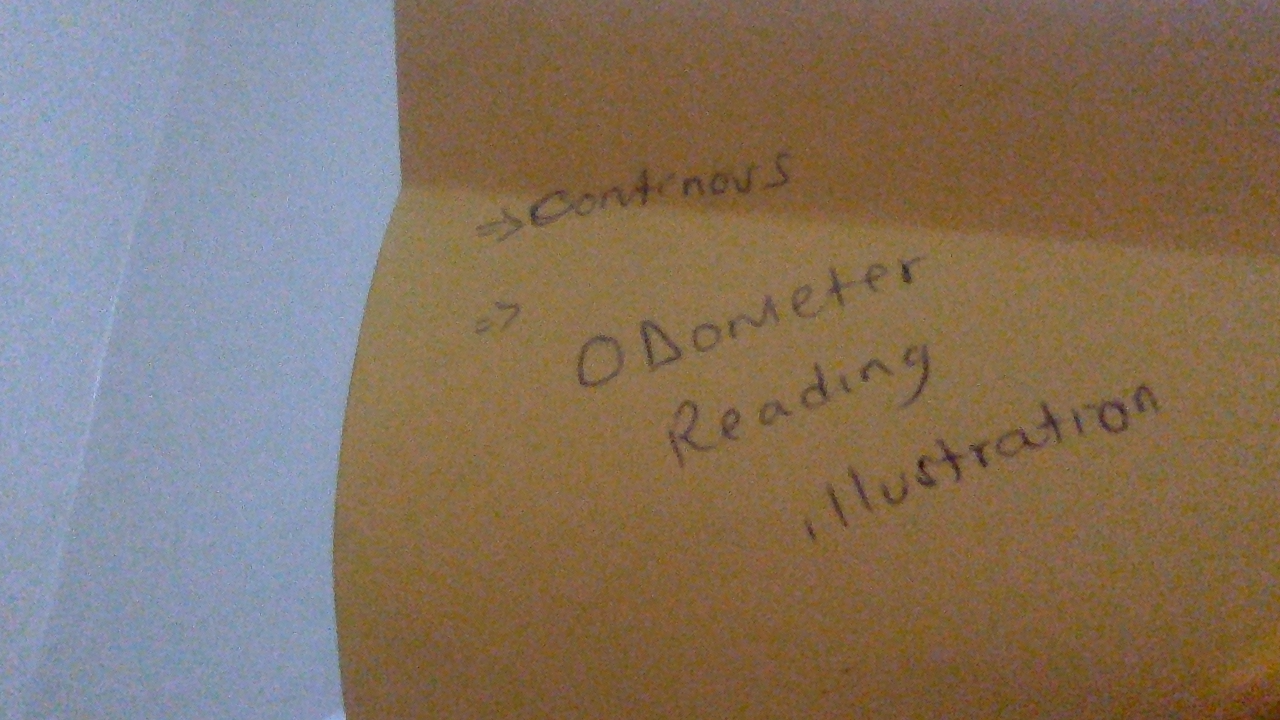 ⇒ Contenous
⇒
ODometer
Reading
illustration